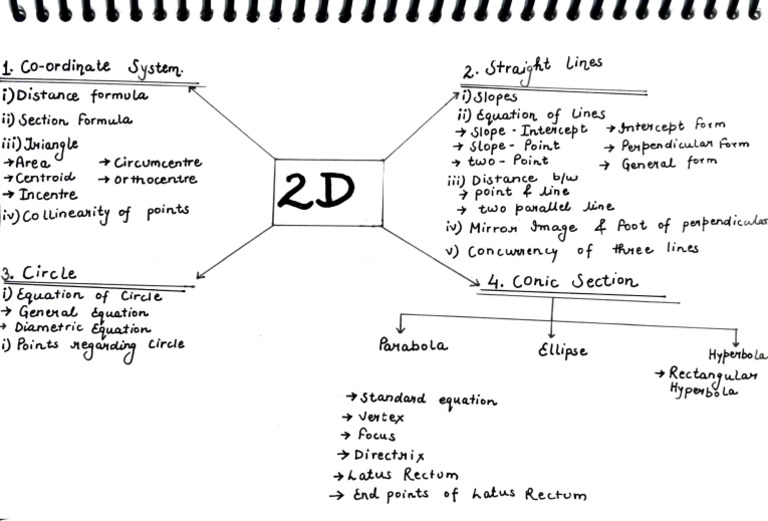 1. Co-ordinate System.
i) Distance formula
ii) Section Formula
iii) Triangle
→ Area → Circumcentre
→ Centroid → Orthocentre
→ Incentre
iv) Collinearity of points
2. Straight Lines
i) Slopes
ii) Equation of Lines
→ Slope - Intercept → Intercept form
→ Slope - Point → Perpendicular form
→ two - Point → General form
iii) Distance b/w
→ point & line
→ two parallel line
iv) Mirror Image & foot of perpendicular
v) Concurrency of three lines
2D
3. Circle
i) Equation of Circle
→ General Equation
→ Diametric Equation
i) Points regarding Circle
4. Conic Section
Parabola
Ellipse
Hyperbola
→ Rectangular
Hyperbola
→ Standard equation
→ Vertex
→ Focus
→ Directrix
→ Latus Rectum
→ End points of Latus Rectum